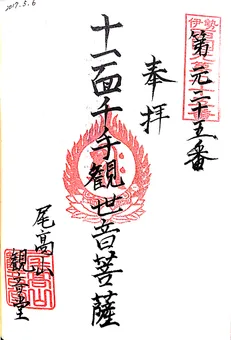 2017.5.6
伊勢
第二十五番
奉拝
十一面千手観世音菩薩
尾高山
観音堂